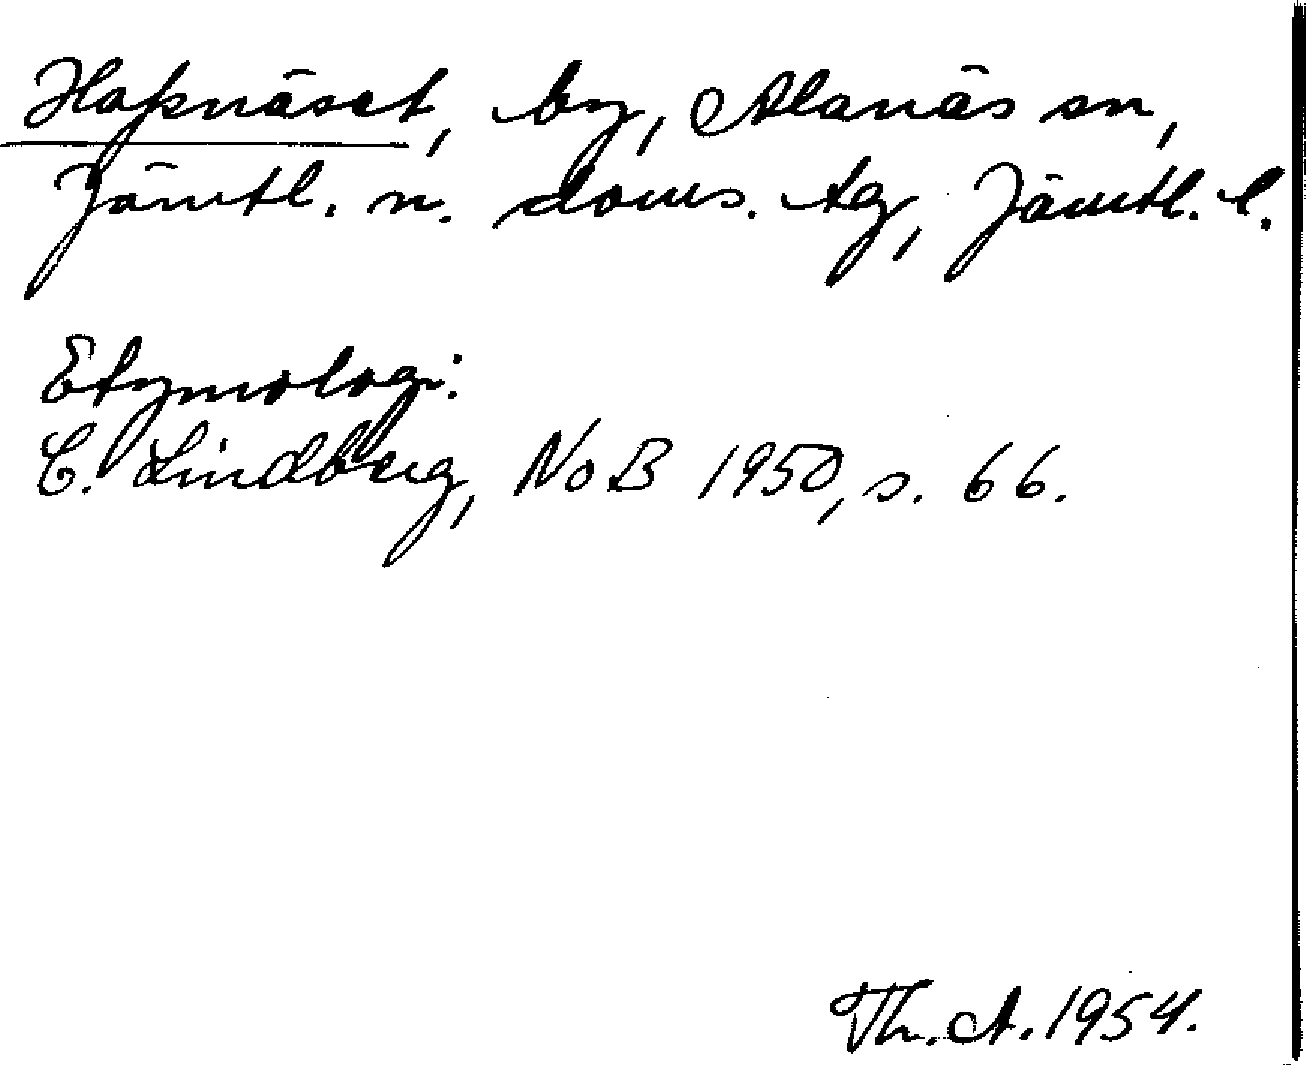 Hapnäset, by, Alanäs sn,
Jämtl. n. doms. tg, Jämtl. l.
Etymologi:
C. Lindberg, NoB 1950, s. 66.
Th. A. 1954.